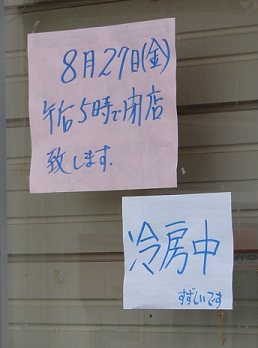 8月27日(金)
午后5時で閉店
致します.
冷房中
すずしいです